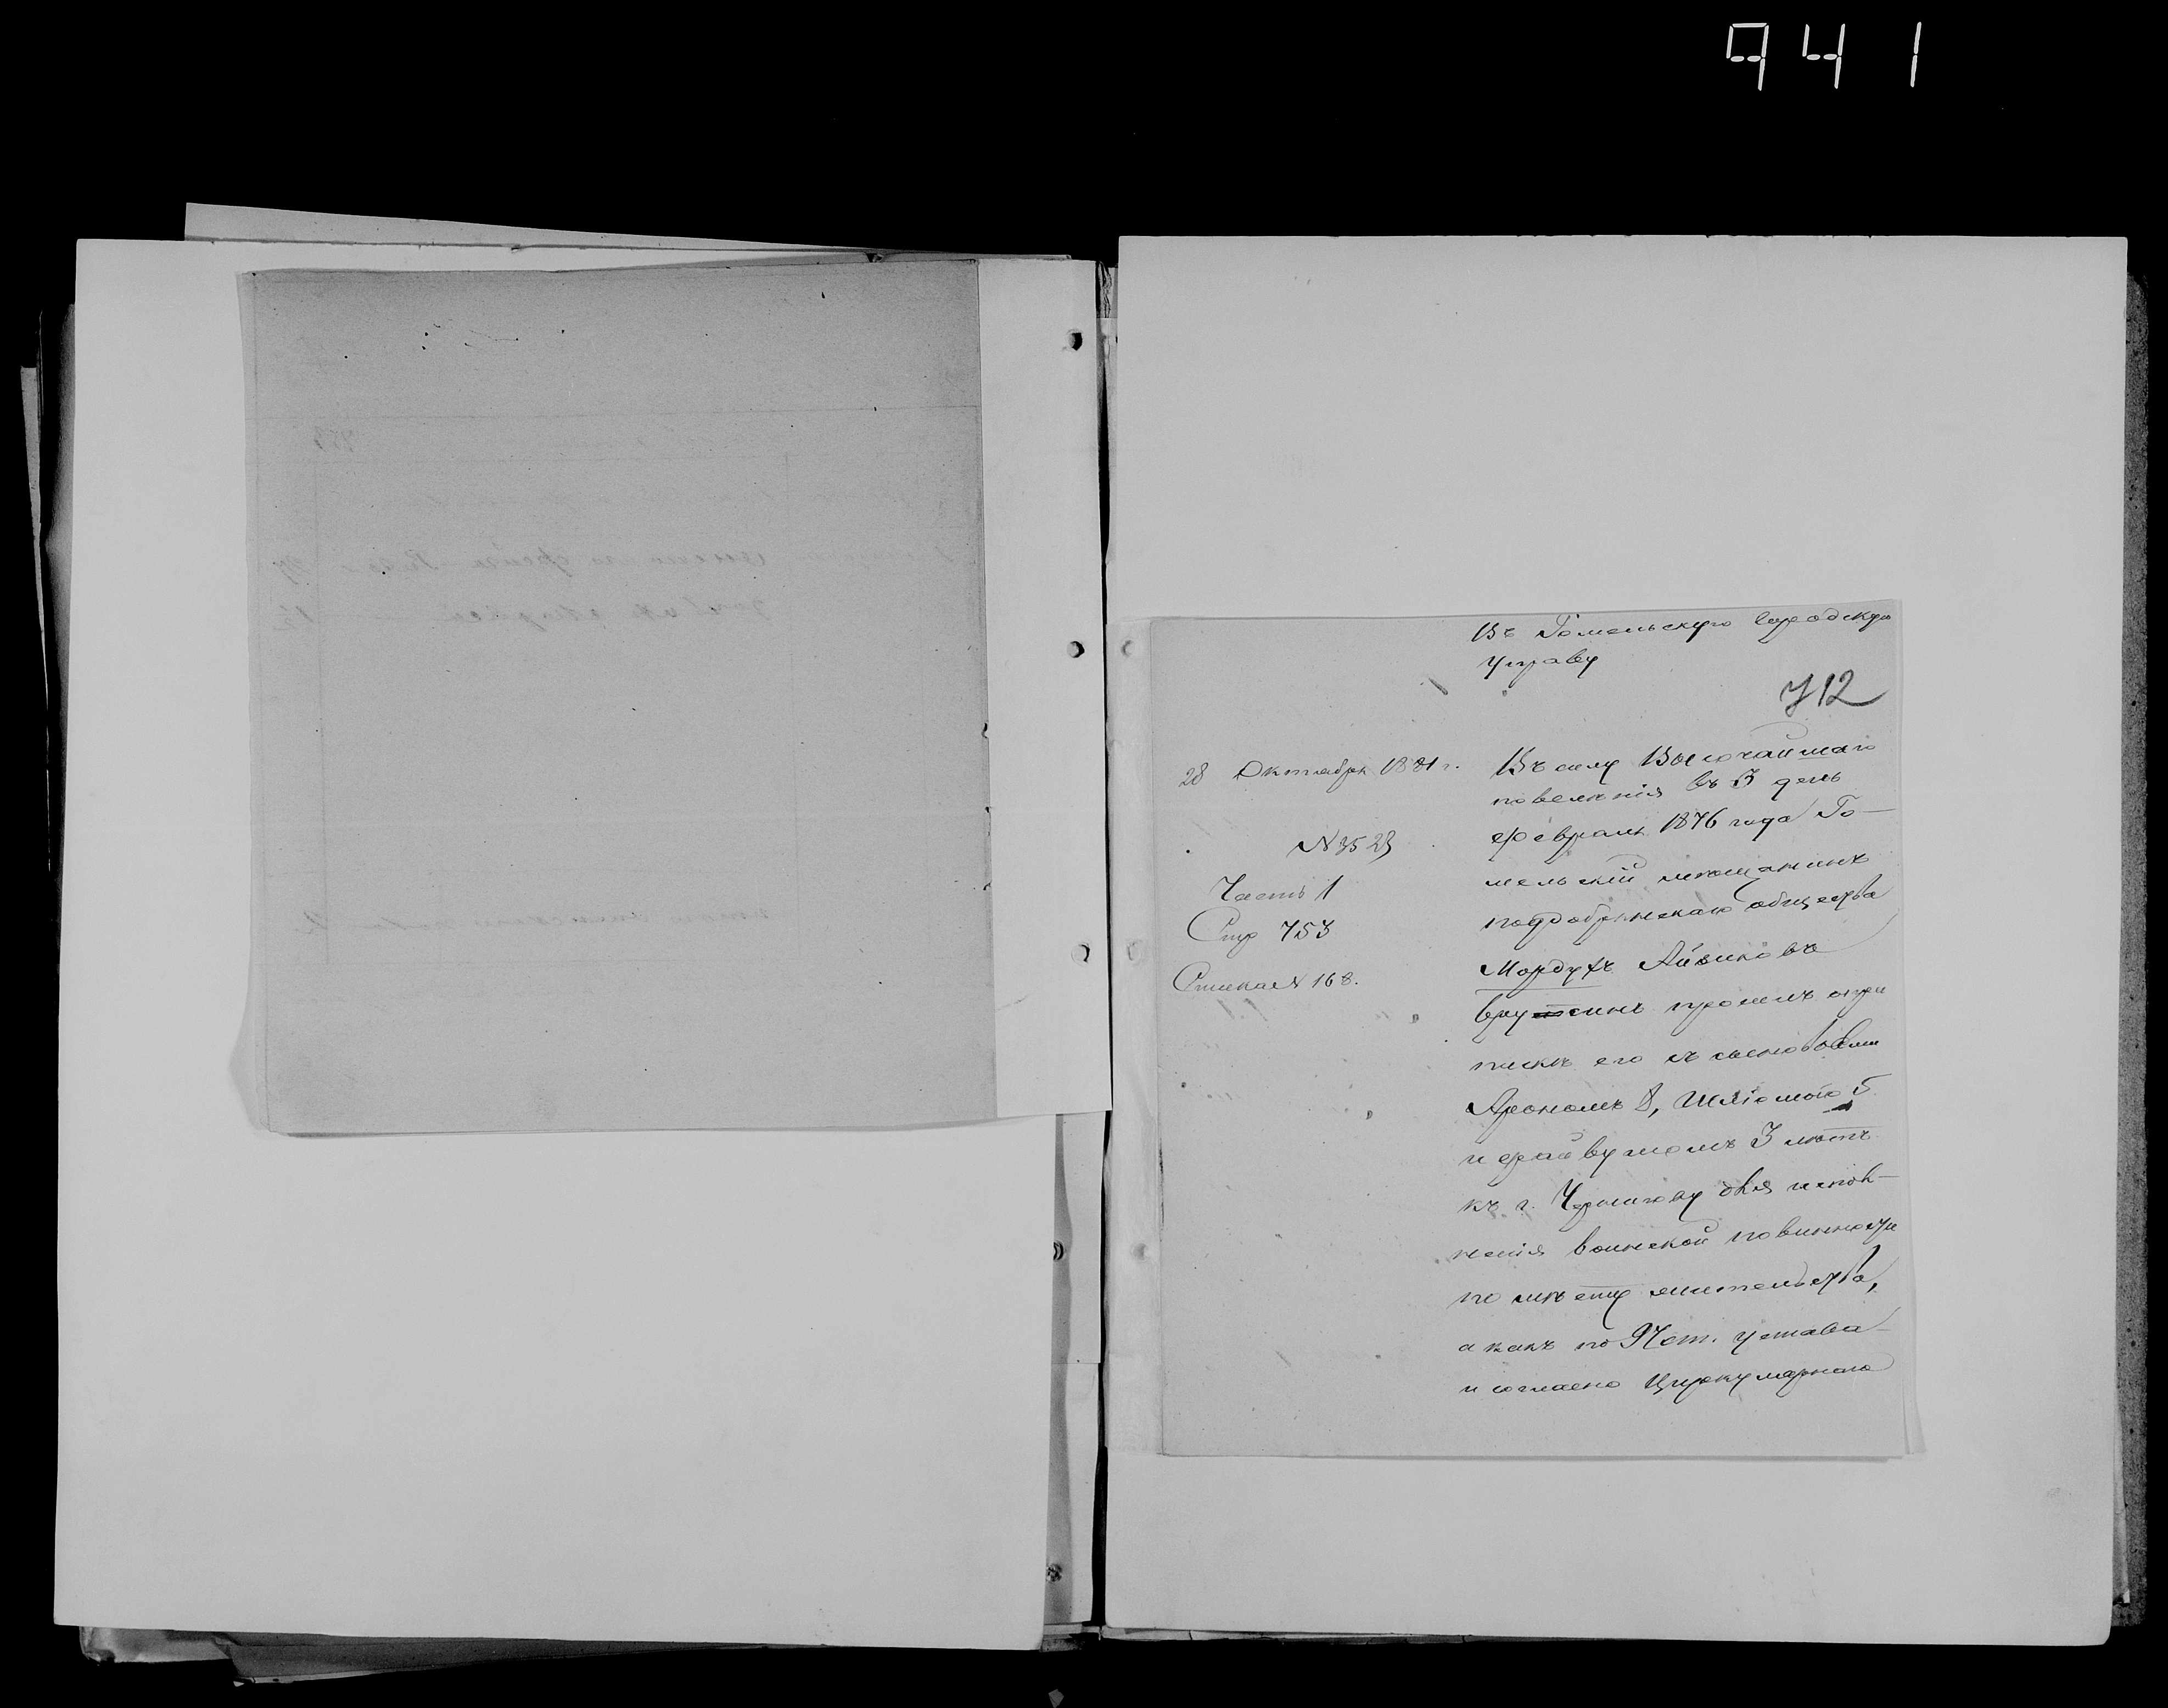 941
Въ Гомельскую городскую
управу
712
28 Октября 1881 г.
№ 3523
Часть 1
Стр 753
Статья № 168.
Въ силу Высочайшаго
повелѣнія въ 3 день
февраля 1876 года Го-
мельскій мѣщанинъ
поддобрянскаго общества
Мордухъ Айзиковъ
просилъ о при
пискѣ его съ сыновьями
Арономъ 8, Шліомою 5
и файвушомъ 3 лѣтъ
къ г. Чернигову для испол-
ненія воинской повинности
по мѣсту жительства,
а какъ по 97 ст. устава
и согласно Циркулярнаго